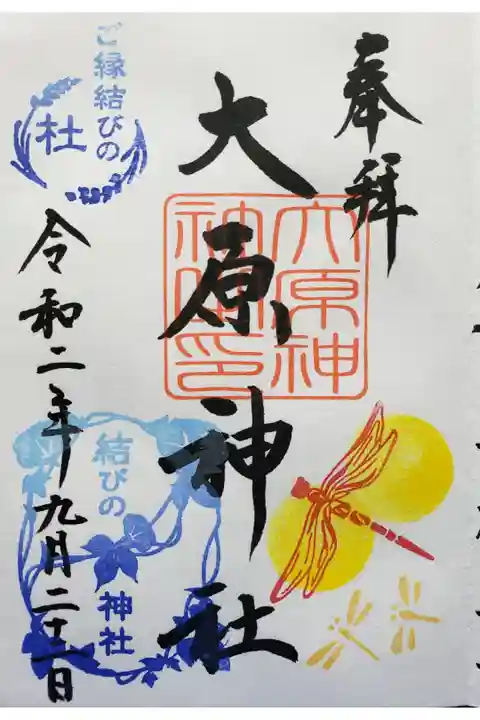 奉拝
大原神社
大原神社印
ご縁結びの
杜
令和二年九月二十二日
結びの
神社